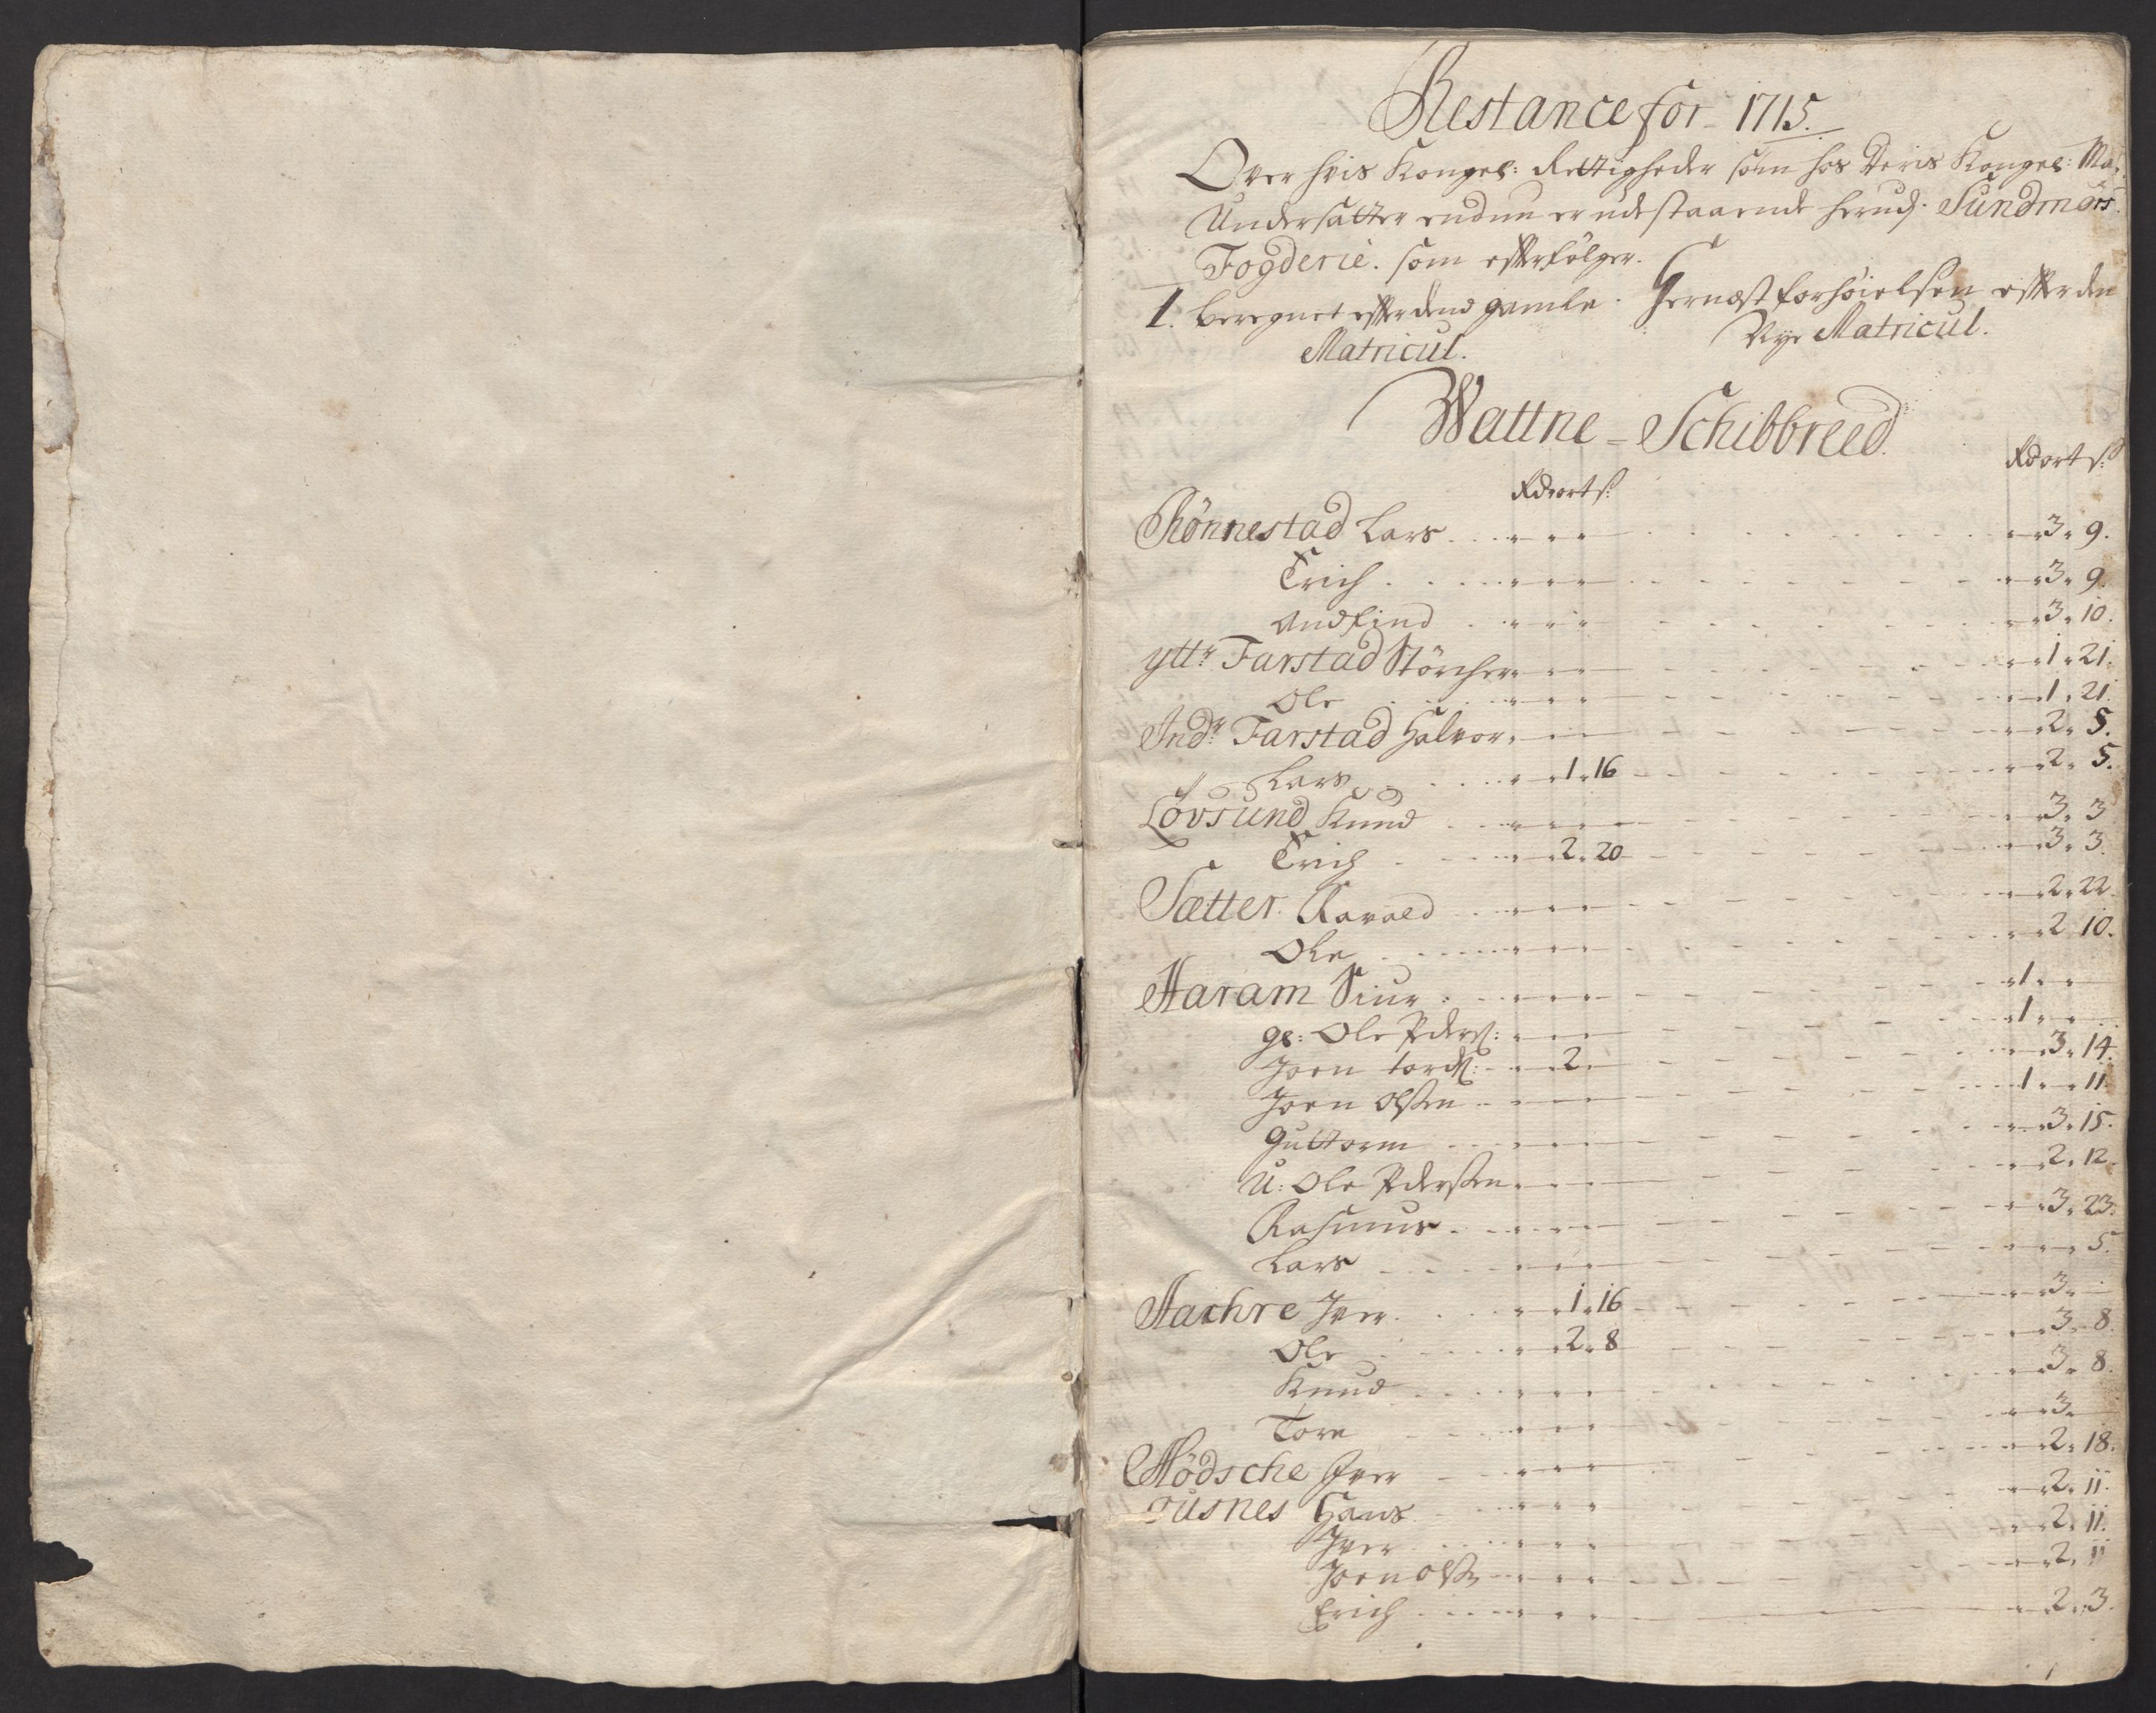 Restance for 1715.
Over hvis Kongel: Rettigheder som hos Deris Kongel: Ma:
Undersatter endnu er udestaaende herudj Sundmörs
Fogderie. som efterfölger.
1. beregnet efter dend gamle Matricul. Hernæst forhöielsen efter den Nye Matricul.
Wattne - Schibbreed.
Rd ort s: Rd ort s:
Rönnestad Lars 3 9.
Erich 3 9.
Andfind 3 10.
ytt:r Farstad Störcher 1 21.
Ole 1 21.
Ind:r Farstad Halvor 2 5.
Lars 1 16 2 5.
Lövsund Knud 3 3
Erich 2 20 3 3.
Sætter Ravald 2 22.
Ole 2 10.
Haram Siur 1
gl: Ole Peders: 1
Joen tords: 2 3 14.
Joen Olsen 1 11.
Guttorm 3 15.
U: Ole Pedersen 2 12.
Rasmus 3 23.
Lars 5.
Aachre Iver 1 16 3
Ole 2 8 3 8.
Knud 3 8.
Tore 3
Mödsche Iver 2 18.
Fusnes Hans 2 11.
Iver 2 11.
Joen Ols: 2 11
Erich 2 3.